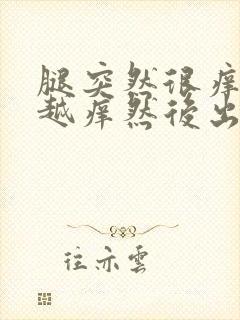 腿突然很痒
越痒然後出
往亦雲